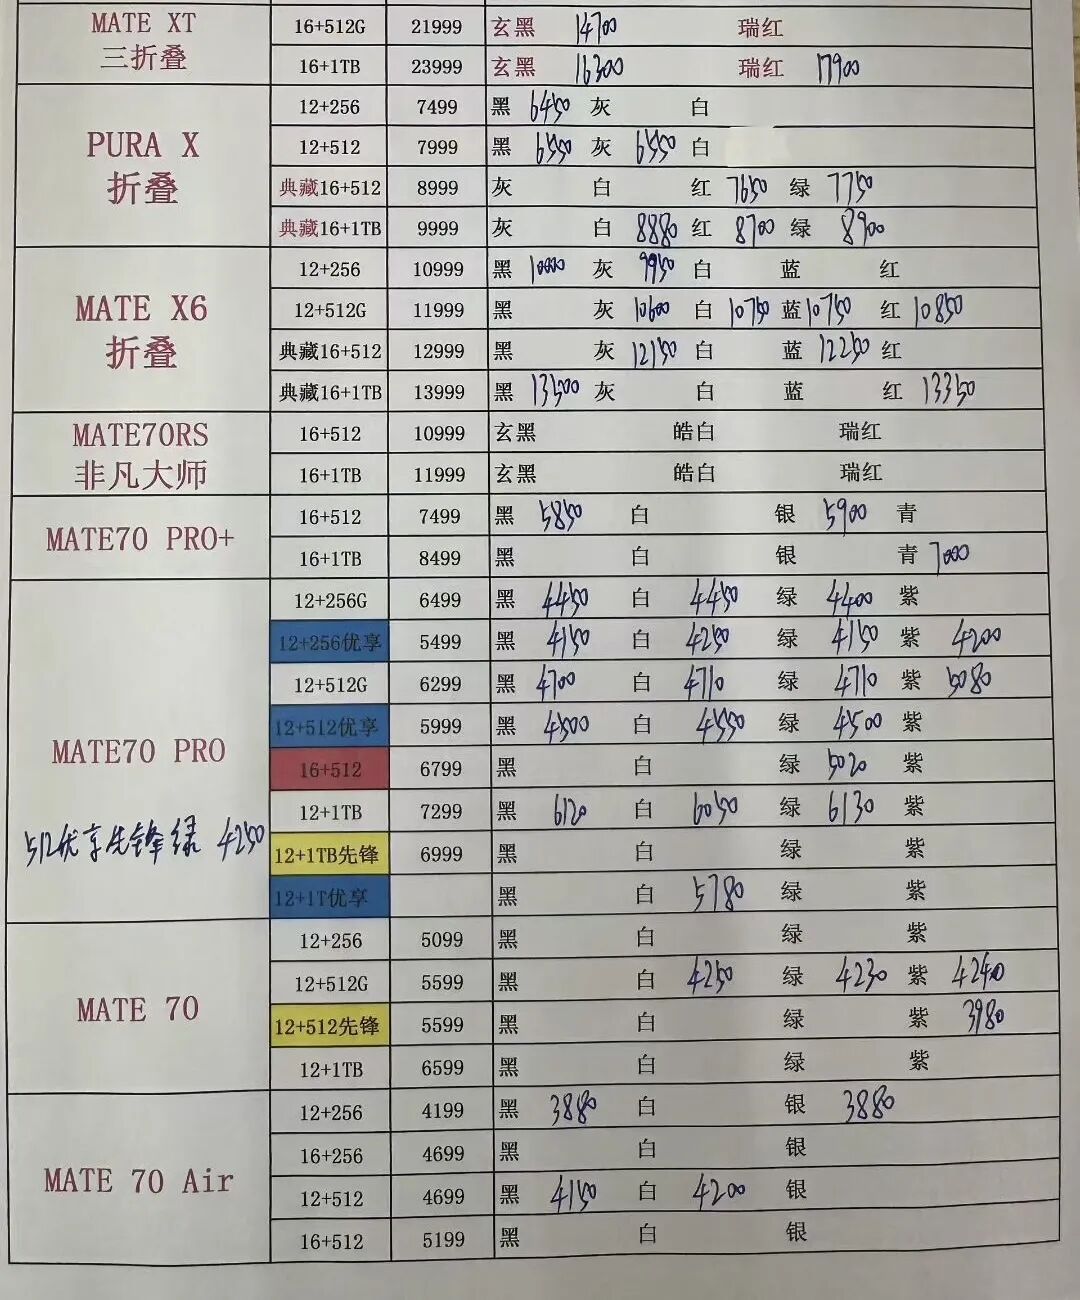 MATE XT 三折叠
16+512G 21999 玄黑 14700 瑞红
16+1TB 23999 玄黑 16300 瑞红 17900
PURA X 折叠
12+256 7499 黑 6450 灰 白
12+512 7999 黑 6550 灰 6550 白
典藏16+512 8999 灰 白 红 7650 绿 7750
典藏16+1TB 9999 灰 白 8880 红 8700 绿 8900
MATE X6 折叠
12+256 10999 黑 10000 灰 9950 白 蓝 红
12+512G 11999 黑 灰 10600 白 10750 蓝 10750 红 10850
典藏16+512 12999 黑 灰 12150 白 蓝 12250 红
典藏16+1TB 13999 黑 13500 灰 白 蓝 红 13350
MATE70RS 非凡大师
16+512 10999 玄黑 皓白 瑞红
16+1TB 11999 玄黑 皓白 瑞红
MATE70 PRO+
16+512 7499 黑 5850 白 银 5900 青
16+1TB 8499 黑 白 银 青 7000
MATE70 PRO
512优享先锋绿 4250
12+256G 6499 黑 4450 白 4450 绿 4400 紫
12+256优享 5499 黑 4150 白 4250 绿 4150 紫 4200
12+512G 6299 黑 4700 白 4710 绿 4710 紫 5080
12+512优享 5999 黑 4500 白 4550 绿 4500 紫
16+512 6799 黑 白 绿 5020 紫
12+1TB 7299 黑 6120 白 6050 绿 6130 紫
12+1TB先锋 6999 黑 白 绿 紫
12+1T优享 黑 白 5780 绿 紫
MATE 70
12+256 5099 黑 白 绿 紫
12+512G 5599 黑 白 4250 绿 4230 紫 4240
12+512先锋 5599 黑 白 绿 紫 3980
12+1TB 6599 黑 白 绿 紫
MATE 70 Air
12+256 4199 黑 3880 白 银 3880
16+256 4699 黑 白 银
12+512 4699 黑 4150 白 4200 银
16+512 5199 黑 白 银